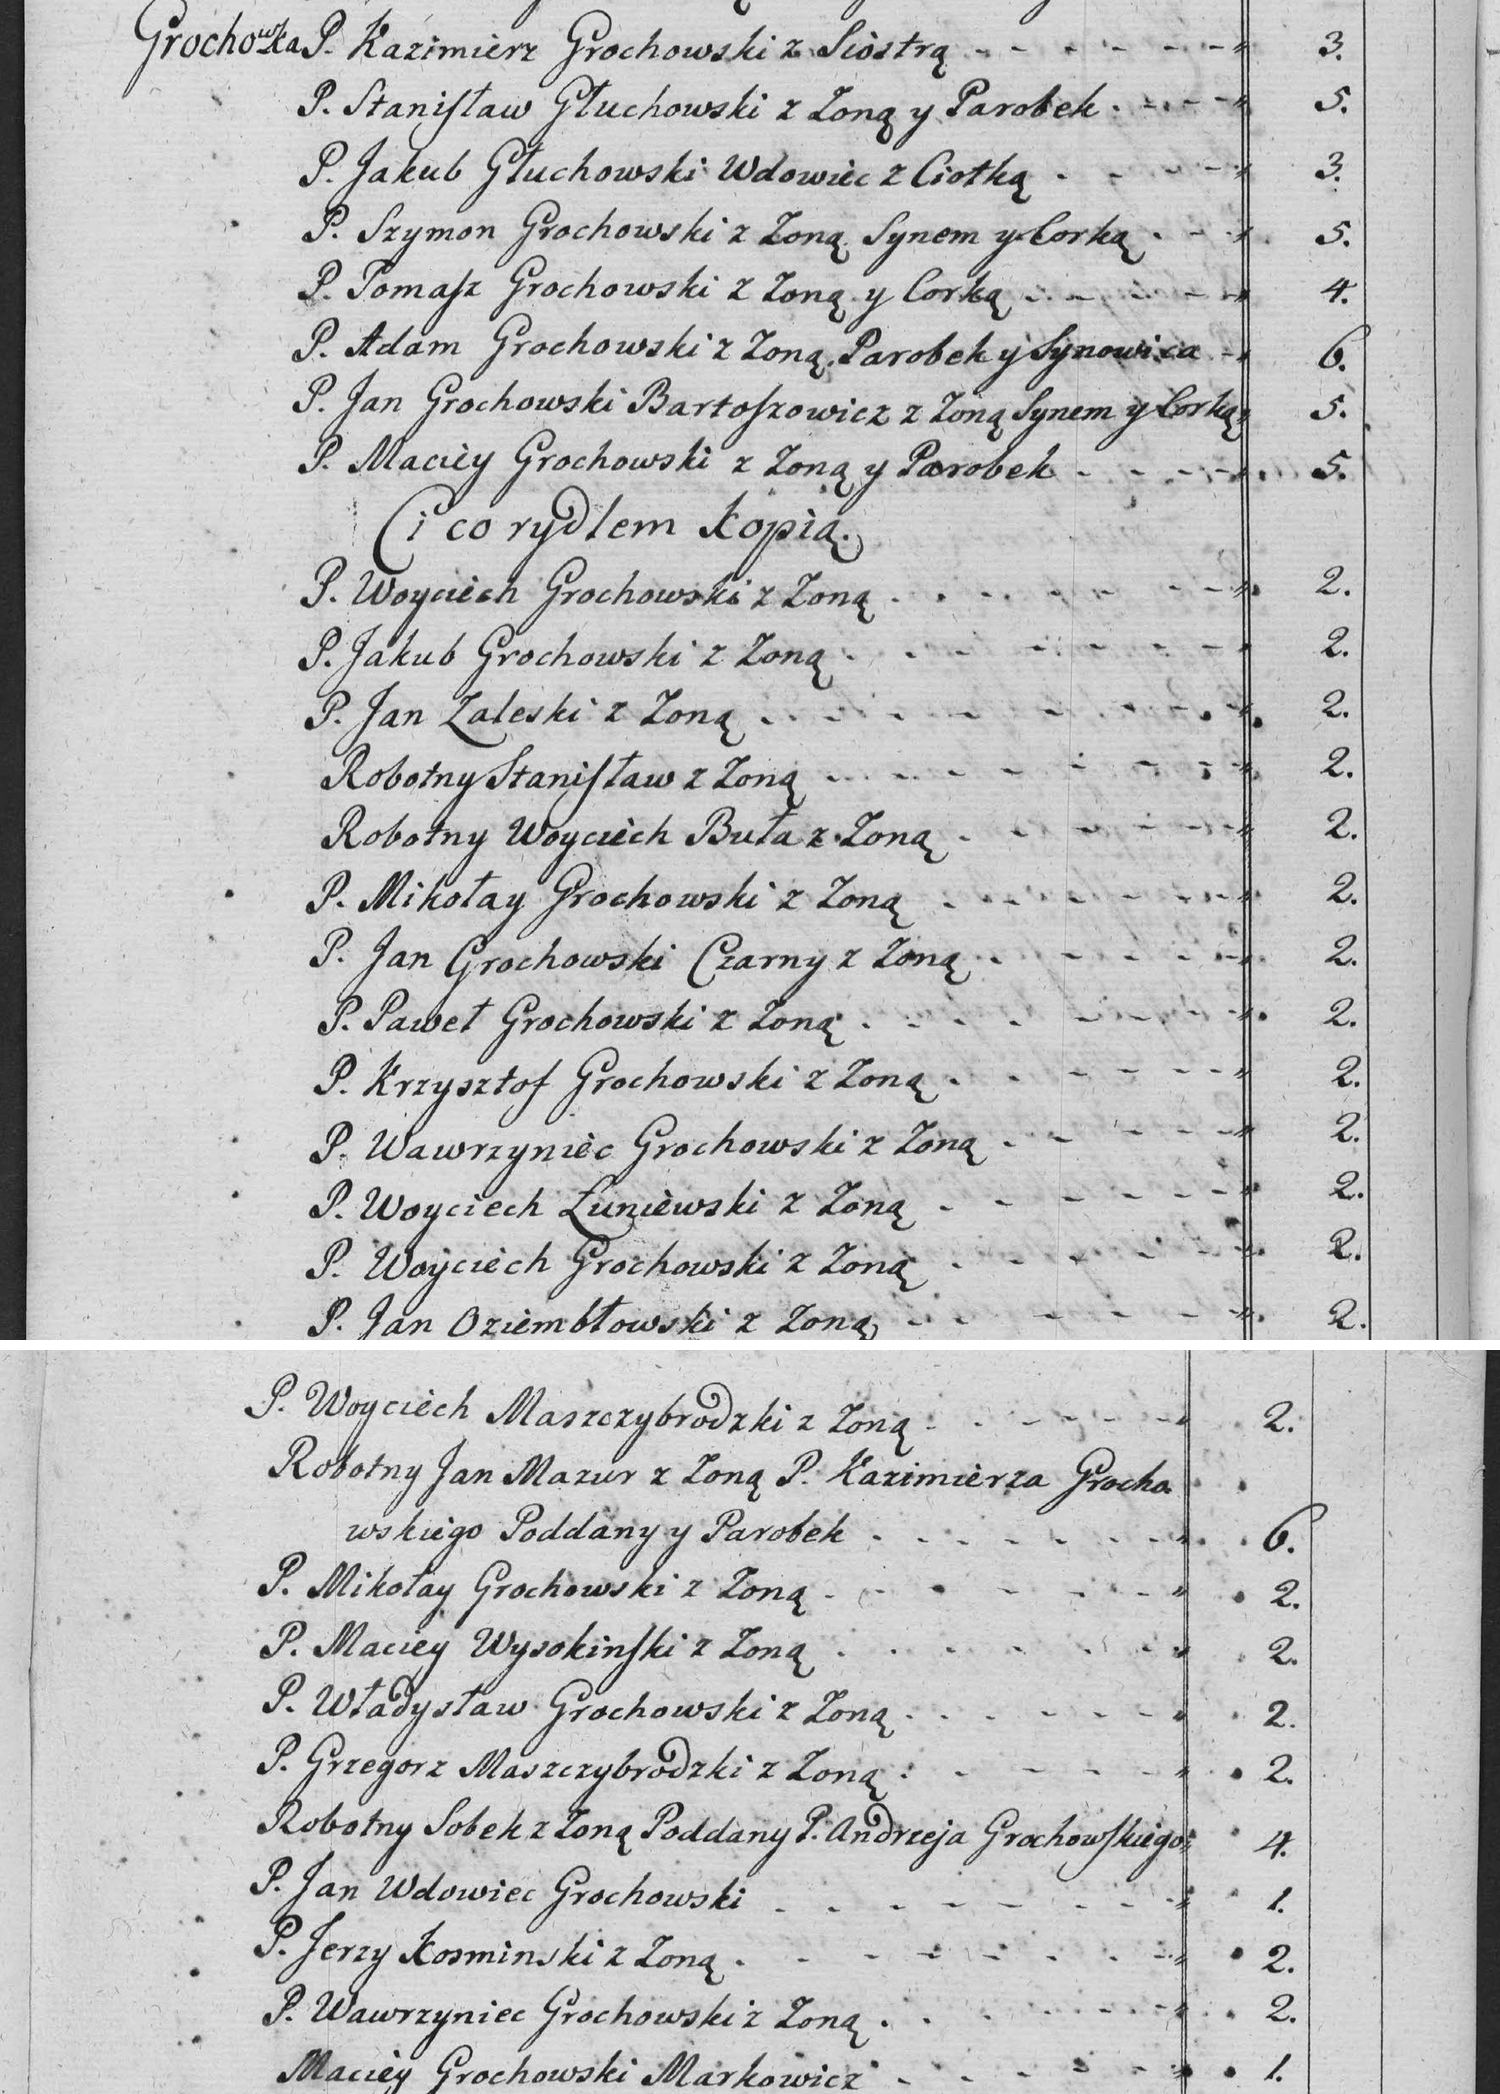 Grochowka P. Kazimierz Grochowski z Siostrą 3.
P. Stanisław Głuchowski z Zoną y Parobek 5.
P. Jakub Głuchowski Wdowiec z Ciotką 3.
P. Szymon Grochowski z Zoną Synem y Corką 5.
P. Tomasz Grochowski z Zoną y Corką 4.
P. Adam Grochowski z Zoną Parobek y Synowica 6.
P. Jan Grochowski Bartoszowicz z Zoną Synem y Corką 5.
P. Maciey Grochowski z Zoną y Parobek 5.
Ci co rydlem kopią.
P. Woyciech Grochowski z Zoną 2.
P. Jakub Grochowski z Zoną 2.
P. Jan Zaleski z Zoną 2.
Robotny Stanisław z Zoną 2.
Robotny Woyciech Buła z Zoną 2.
P. Mikołay Grochowski z Zoną 2.
P. Jan Grochowski Czarny z Zoną 2.
P. Paweł Grochowski z Zoną 2.
P. Krzysztof Grochowski z Zoną 2.
P. Wawrzyniec Grochowski z Zoną 2.
P. Woyciech Łuniewski z Zoną 2.
P. Woyciech Grochowski z Zoną 2.
P. Jan Oziembłowski z Zoną 2.
P. Woyciech Maszczybrodzki z Zoną 2.
Robotny Jan Mazur z Zoną P. Kazimierza Grocho
wskiego Poddany y Parobek 6.
P. Mikołay Grochowski z Zoną 2.
P. Maciey Wysokinski z Zoną 2.
P. Władysław Grochowski z Zoną 2.
P. Grzegorz Maszczybrodzki z Zoną 2.
Robotny Sobek z Zoną Poddany P. Andrzeja Grochowskiego 4.
P. Jan Wdowiec Grochowski 1.
P. Jerzy Kosminski z Zoną 2.
P. Wawrzyniec Grochowski z Zoną 2.
Maciey Grochowski Markowicz 1.